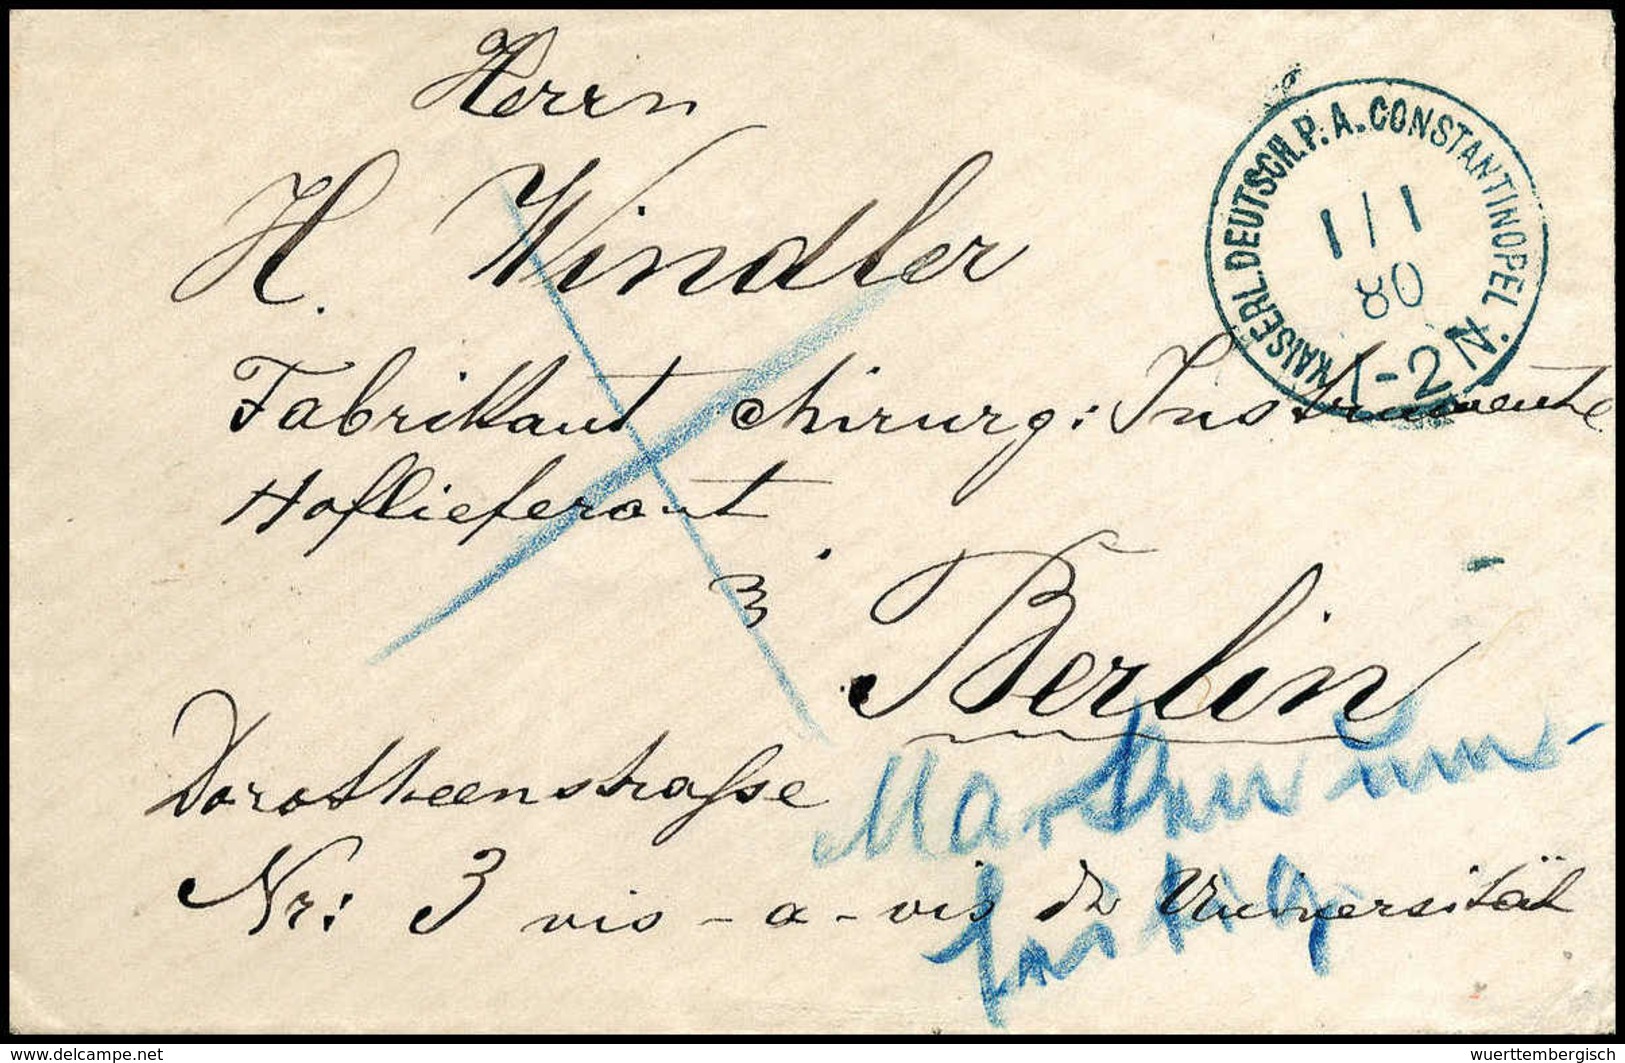 Herrn
KAISERL. DEUTSCH. P. A. CONSTANTINOPEL
1/1
80
1-2 N.
H. Windler
Fabrikant chirurg: Instrumente
Hoflieferant
3
Berlin
Dorotheenstraſse
Nr: 3 vis-a-vis der Universität
www.delcampe.net
wuerttembergisch